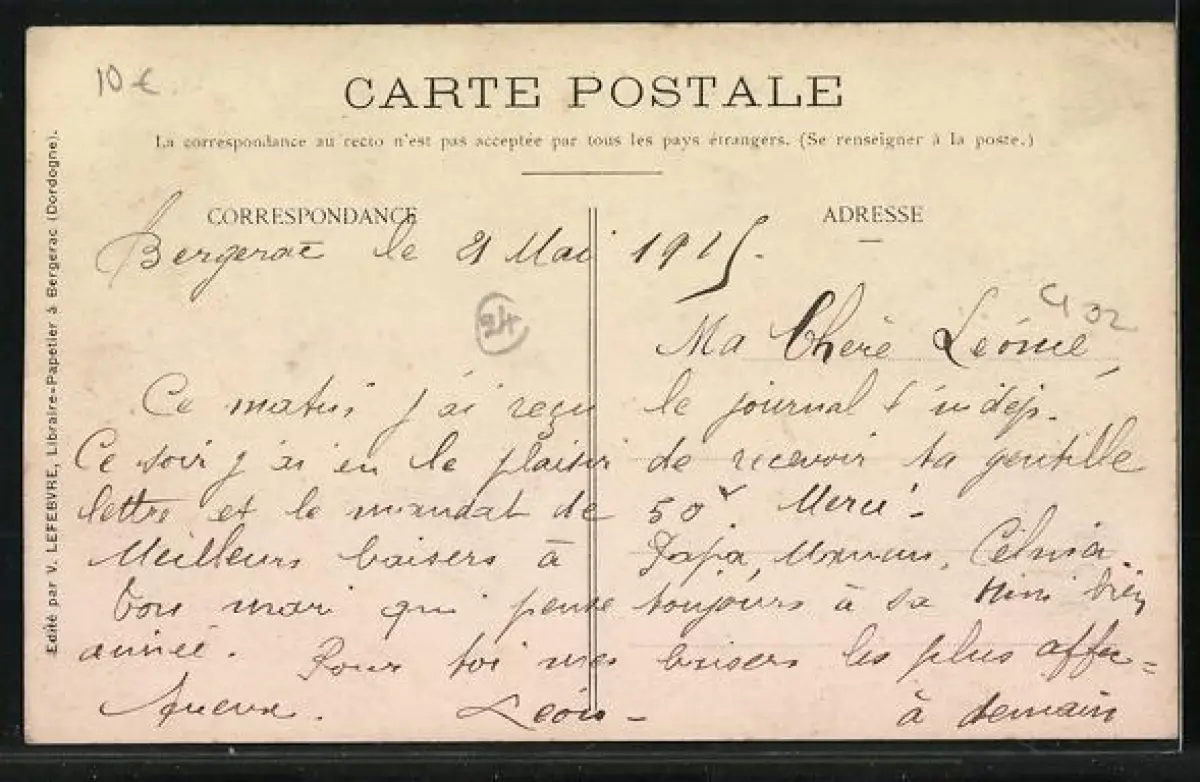 10 €
CARTE POSTALE
La correspondance au recto n'est pas acceptée par tous les pays étrangers. (Se renseigner à la poste.)
CORRESPONDANCE
ADRESSE
Edité par V. LEFEBVRE, Libraire-Papetier à Bergerac (Dordogne).
Bergerac le 21 Mai 1915.
24
Ma Chère Léonie,
Ce matin j'ai reçu le journal l'indép.
Ce soir j'ai eu le plaisir de recevoir ta gentille
lettre et le mandat de 50f Merci.
Meilleurs baisers à Papa, Maman,
Ton mari qui pense toujours à sa Mimi bien
aimée. Pour toi mes baisers les plus affec=
tueux. Léon - à demain